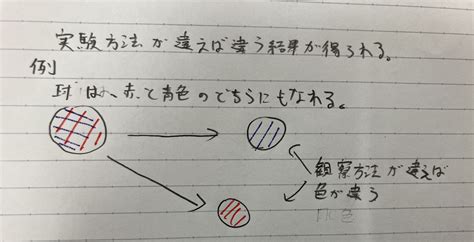 実験方法が違えば違う結果が得られる。
例
球は、赤と青色のどちらにもなれる。
観察方法が違えば
色が違う